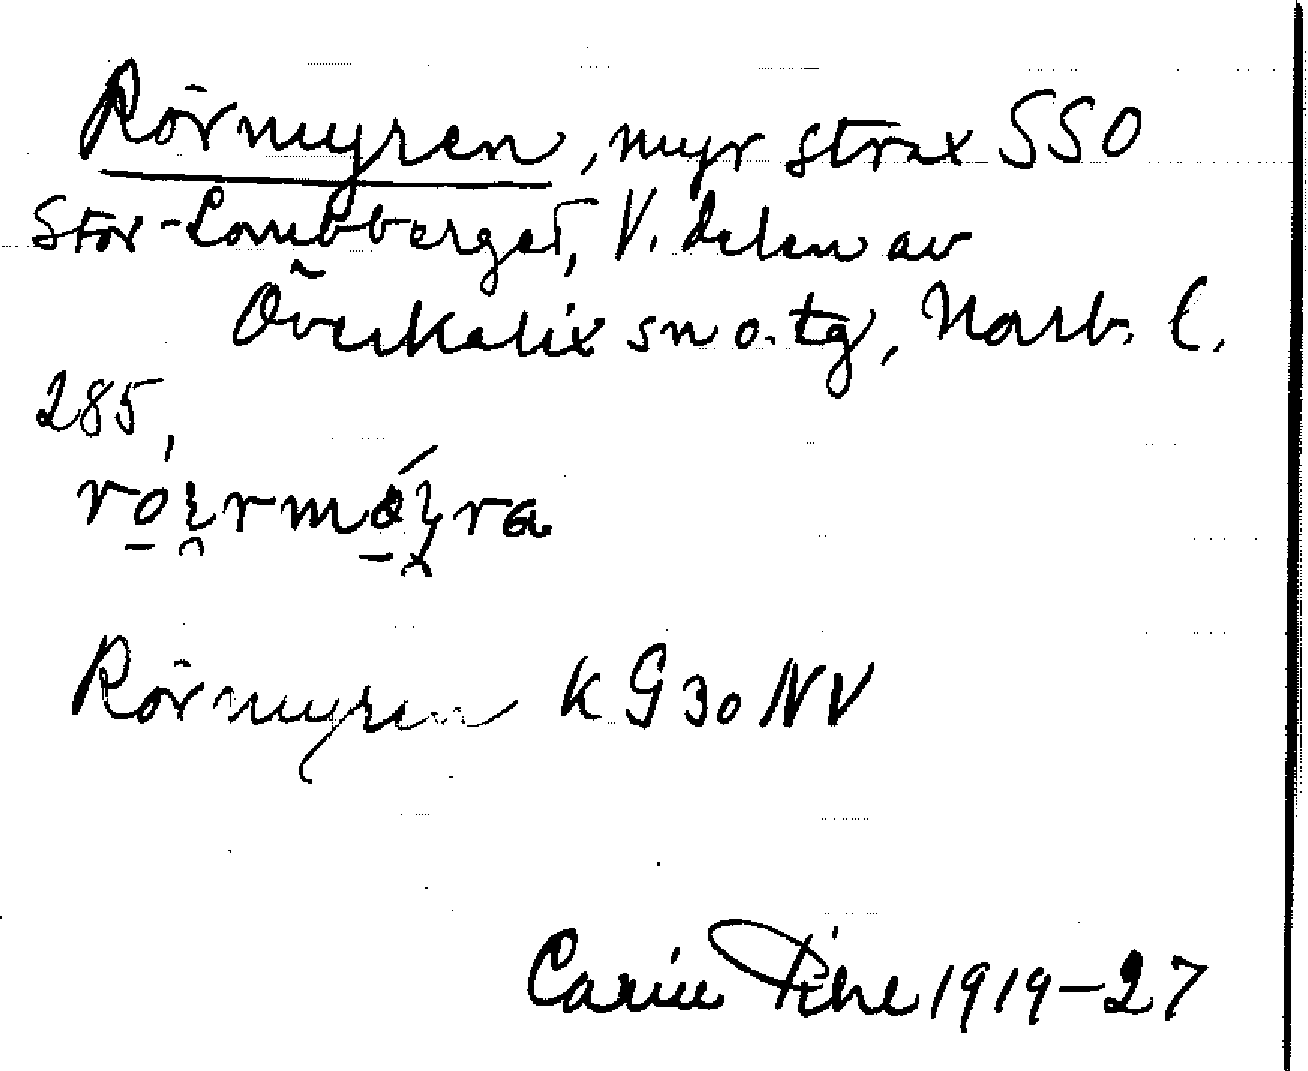 Rörmyren, myr strax SSO
Stor-Lombberget, V. delen av
Överkalix sn o. tg, Norrb. l.
285.
Rörmyren KG30NV
Carin Pihl 1919-27